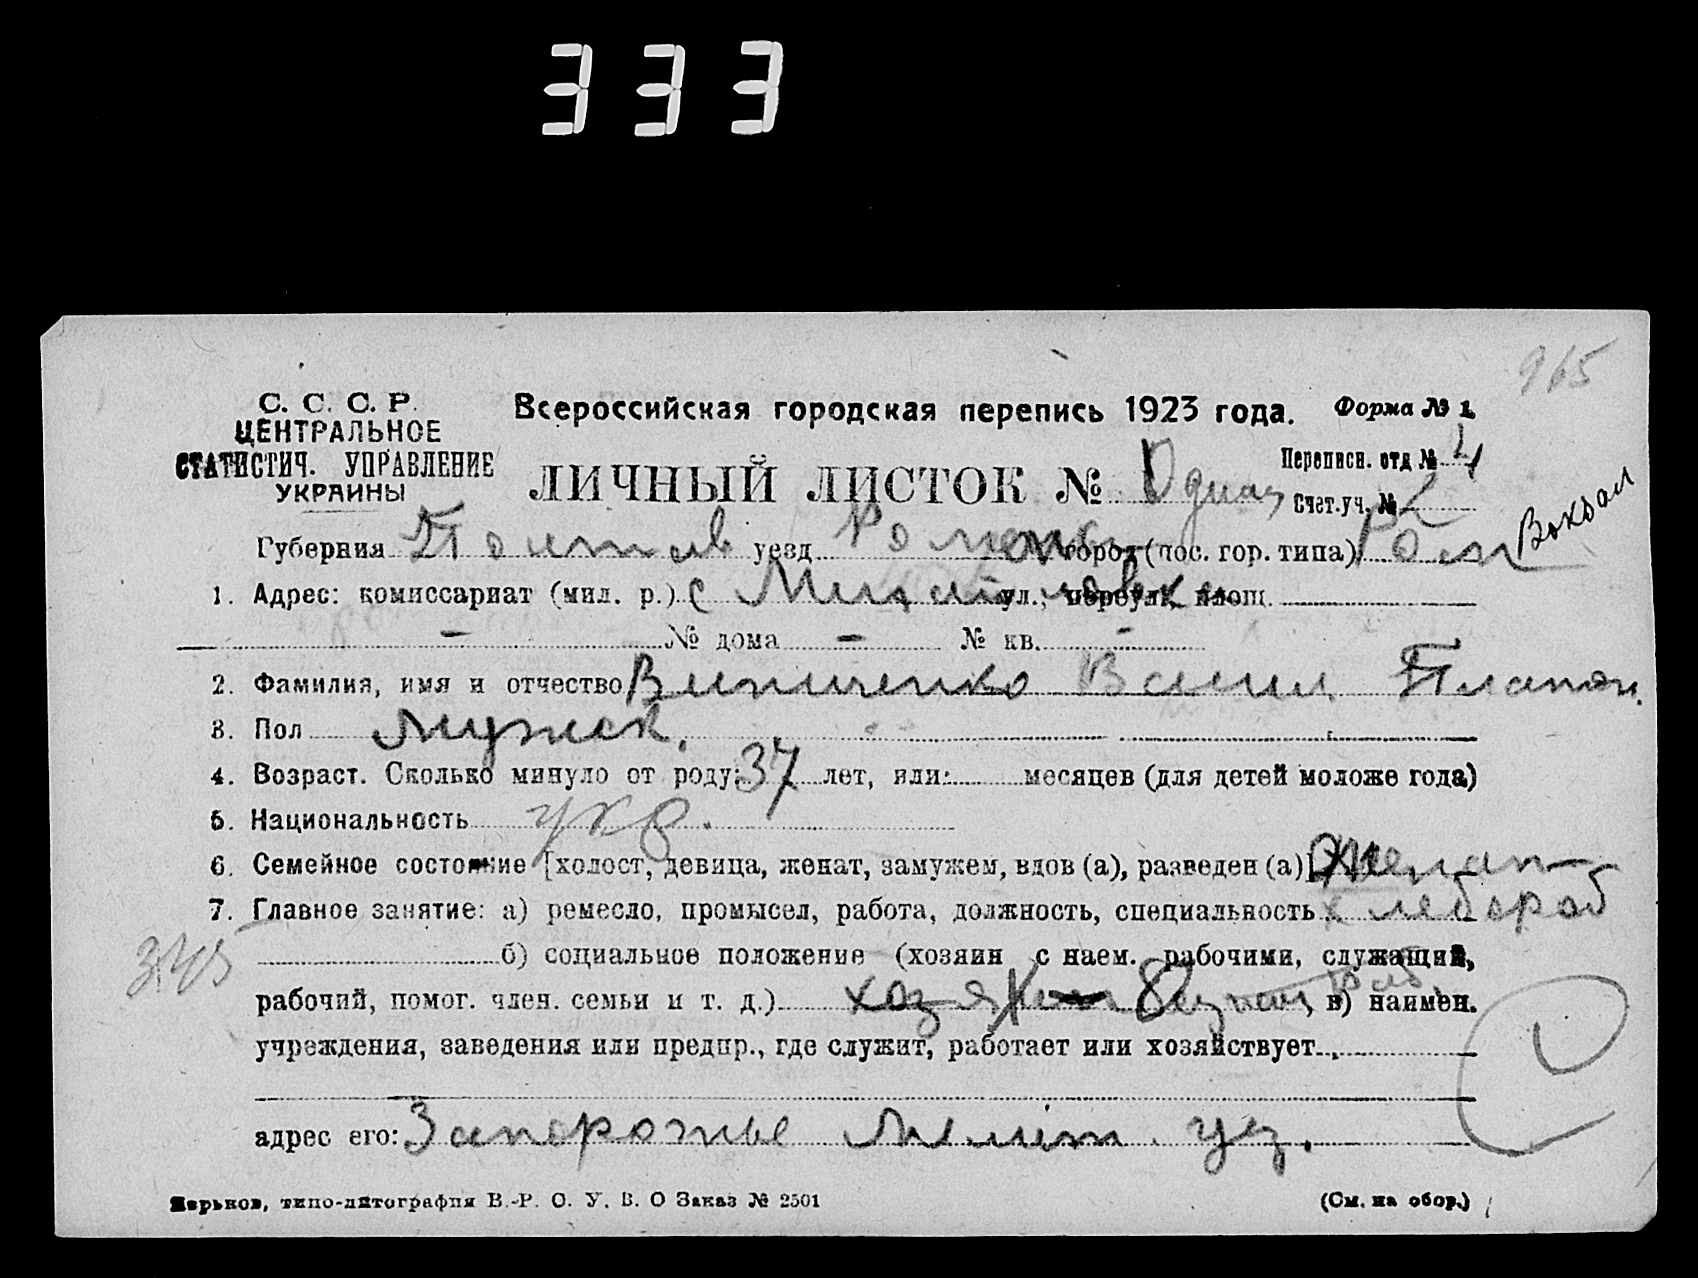 333
965
С. С. С. Р.
ЦЕНТРАЛЬНОЕ
СТАТИСТИЧ. УПРАВЛЕНИЕ
УКРАИНЫ
Всероссийская городская перепись 1923 года. Форма № 1.
Переписн. отд № 4
ЛИЧНЫЙ ЛИСТОК № Счет.уч. № 2
Вокзал
Губерния Полтав уезд Роменск город (пос. гор. типа) Ромн
1. Адрес: комиссариат (мил. р.) с ул., переулк, площ.
— № дома — № кв. —
2. Фамилия, имя и отчество Винниченко Васил Платон.
3. Пол Мужск.
4. Возраст. Сколько минуло от роду: 37 лет, или: месяцев (для детей моложе года)
5. Национальность укр.
6. Семейное состояние [холост, девица, женат, замужем, вдов (а), разведен (а)] Женат
7. Главное занятие: а) ремесло, промысел, работа, должность, специальность хлебороб
б) социальное положение (хозяин с наем. рабочими, служащий,
рабочий, помог. член. семьи и т. д.) в) наимен.
учреждения, заведения или предпр., где служит, работает или хозяйствует
адрес его: Запорожье Мелит. уез.
Харьков, типо-литография В.-Р. О. У. В. О Заказ № 2501 (См. на обор.)